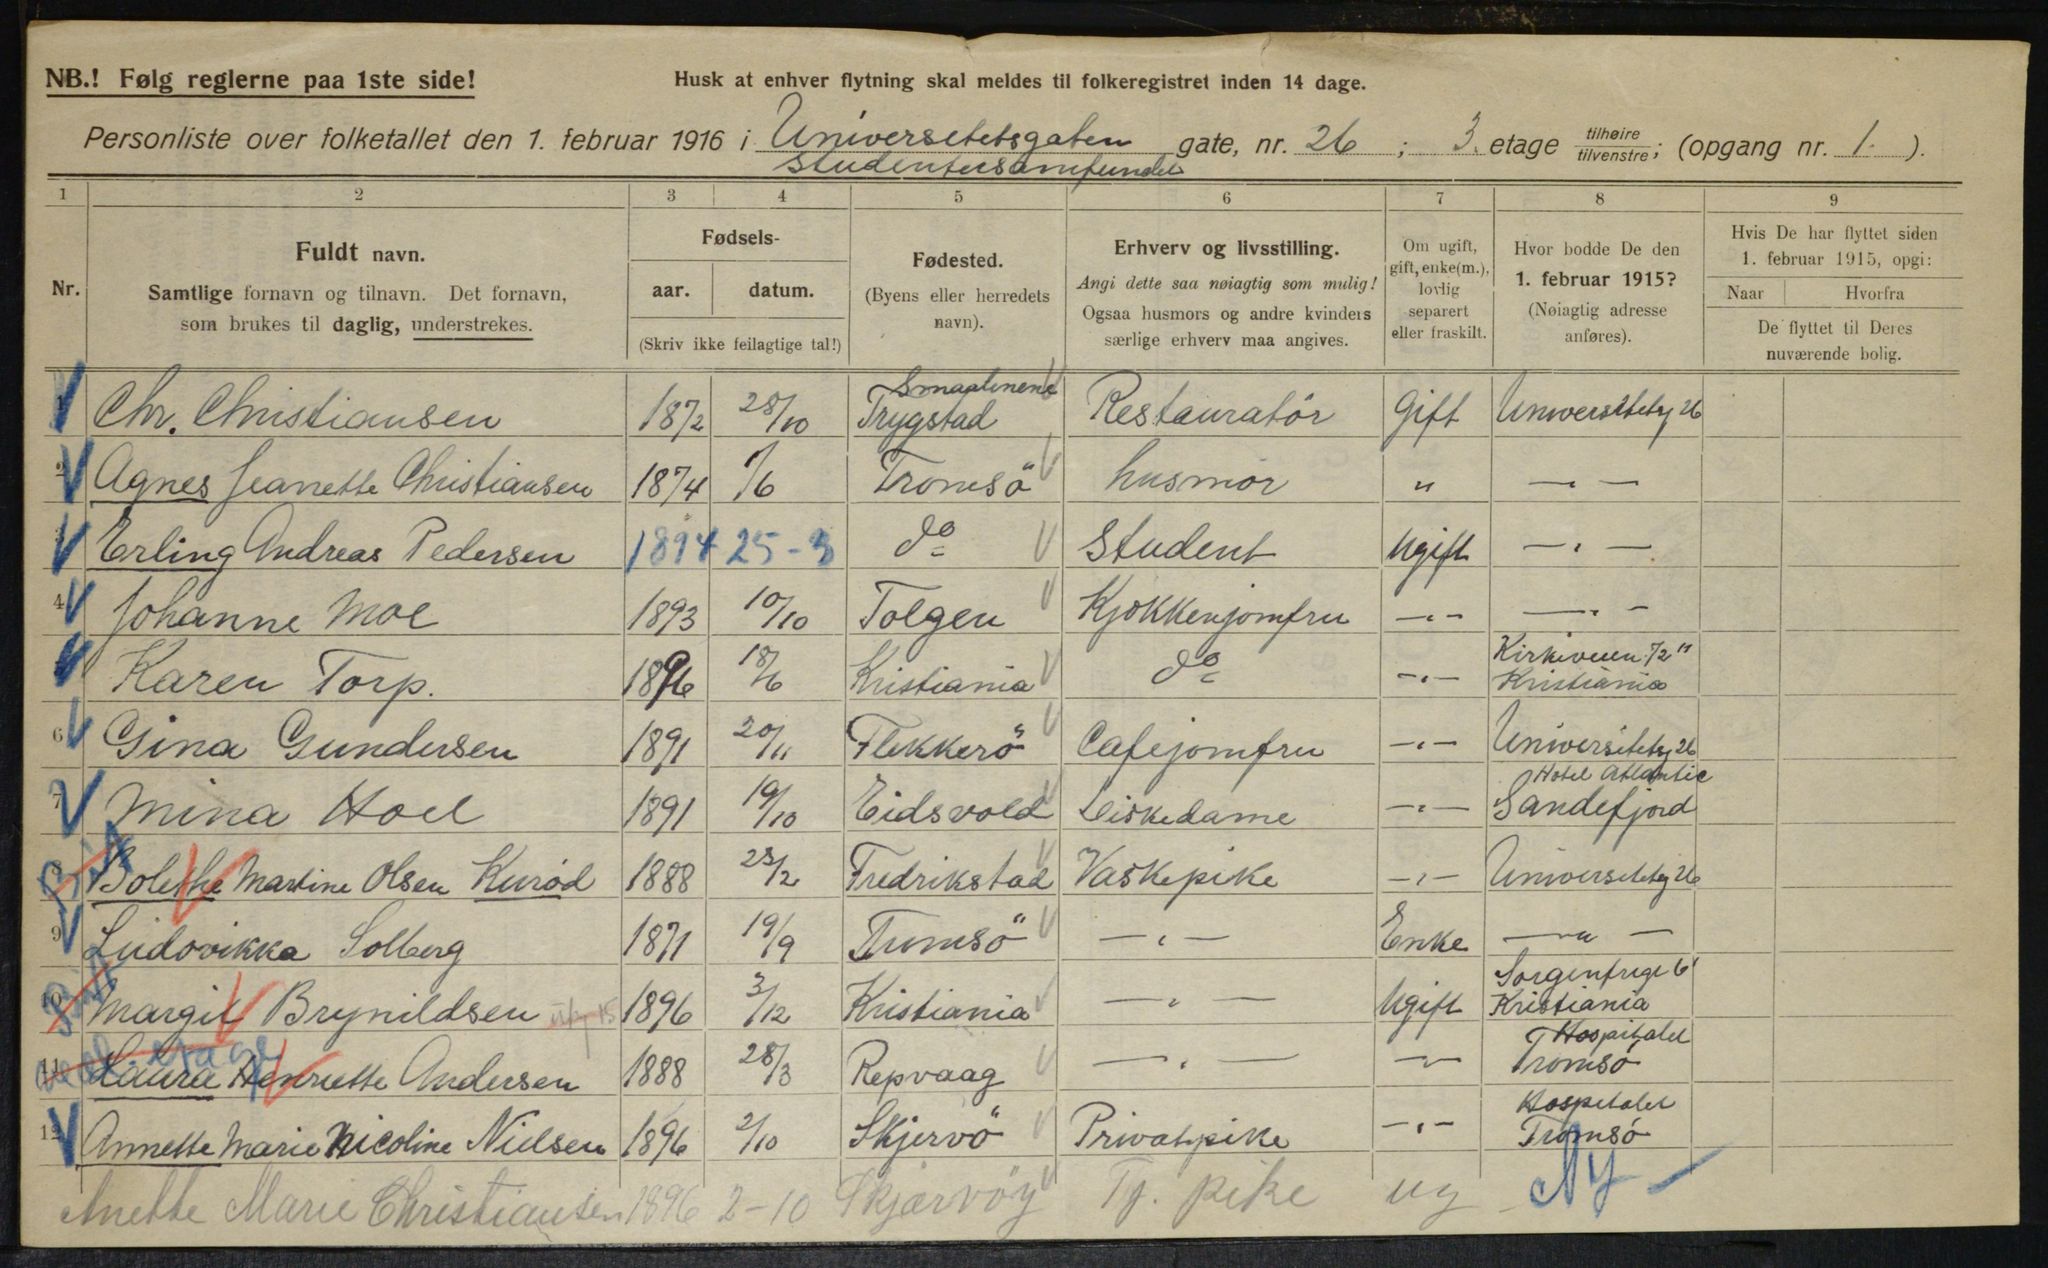 NB.! Følg reglerne paa 1ste side!
Husk at enhver flytning skal meldes til folkeregistret inden 14 dage.
Personliste over folketallet den 1. februar 1916 i Universitetsgaten gate, nr. 26 ; 3. etage tilhøire tilvenstre; (opgang nr. 1. ).
Studentersamfundet
1 2 3 4 5 6 7 8 9
Nr.
Fuldt navn.
Samtlige fornavn og tilnavn. Det fornavn,
som brukes til daglig, understrekes.
Fødsels-
aar. datum.
(Skriv ikke feilagtige tal!)
Fødested.
(Byens eller herredets
navn).
Erhverv og livsstilling.
Angi dette saa nøiagtig som mulig!
Ogsaa husmors og andre kvinders
særlige erhverv maa angives.
Om ugift,
gift, enke(m.),
lovlig
separert
eller fraskilt.
Hvor bodde De den
1. februar 1915?
(Nøiagtig adresse
anføres).
Hvis De har flyttet siden
1. februar 1915, opgi:
Naar Hvorfra
De flyttet til Deres
nuværende bolig.
Smaalenene
1 Chr. Christiansen 1872 28/10 Trygstad Restauratör Gift Universitetsg 26
2 Agnes Jeanette Christiansen 1874 1/6 Tromsö husmor " — „ —
3 Erling Andreas Pedersen 1894 25-3 do Student Ugift — „ —
4 Johanne Moe 1893 10/10 Tolgen Kjøkkenjomfru — „ — — „ —
Kirkeveien 72 II
5 Karen Torp. 1896 18/6 Kristiania do — „ — Kristiania
6 Gina Gundersen 1891 20/11 Flekkerö Cafejomfru — „ — Universitetsg 26
Hotel Atlantic
7 Mina Hoel 1891 19/10 Eidsvold Diskedame — „ — Sandefjord
8 Bolethe Martine Olsen Kuröd 1888 23/2 Fredrikstad Vaskepike — „ — Universitetsg 26
9 Ludovikka Solberg 1871 19/9 Tromsö — „ — Enke — „ —
Sorgenfrigt 6
10 Margit Brynildsen 1896 3/12 Kristiania — „ — Ugift Kristiania
Hospitalet
11 Laura Henriette Andersen 1888 28/3 Repvaag — „ — — „ — Tromsö
Hospitalet
12 Annette Marie Nicoline Nielsen 1896 2/10 Skjervö Privatpike — „ — Tromsö
Anette Marie Christiansen 1896 2-10 Skjærvöy Tj. pike ug Ny —